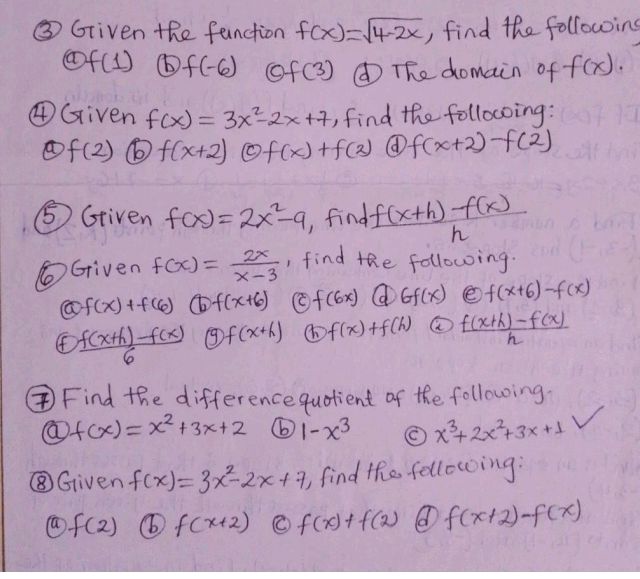 ③ Given the function f(x)=√4-2x, find the following
ⓐf(1) ⓑf(-6) ⓒf(3) ⓓ The domain of f(x).
④ Given f(x) = 3x²-2x+7, find the following:
ⓐf(2) ⓑ f(x+2) ⓒf(x)+f(2) ⓓf(x+2)-f(2)
⑤ Given f(x)=2x²-9, find f(x+h)-f(x)/h
⑥ Given f(x)= 2x/x-3, find the following.
ⓐf(x)+f(6) ⓑf(x+6) ⓒf(6x) ⓓ6f(x) ⓔf(x+6)-f(x)
ⓕf(x+h)-f(x)/6 ⓖf(x+h) ⓗf(x)+f(h) ⓐ f(x+h)-f(x)/h
⑦ Find the difference quotient of the following.
ⓐf(x)=x²+3x+2 ⓑ1-x³ ⓒ x³+2x²+3x+1 ✓
⑧ Given f(x)= 3x²-2x+7, find the following:
ⓐf(2) ⓑ f(x+2) ⓒ f(x)+f(2) ⓓ f(x+2)-f(x)